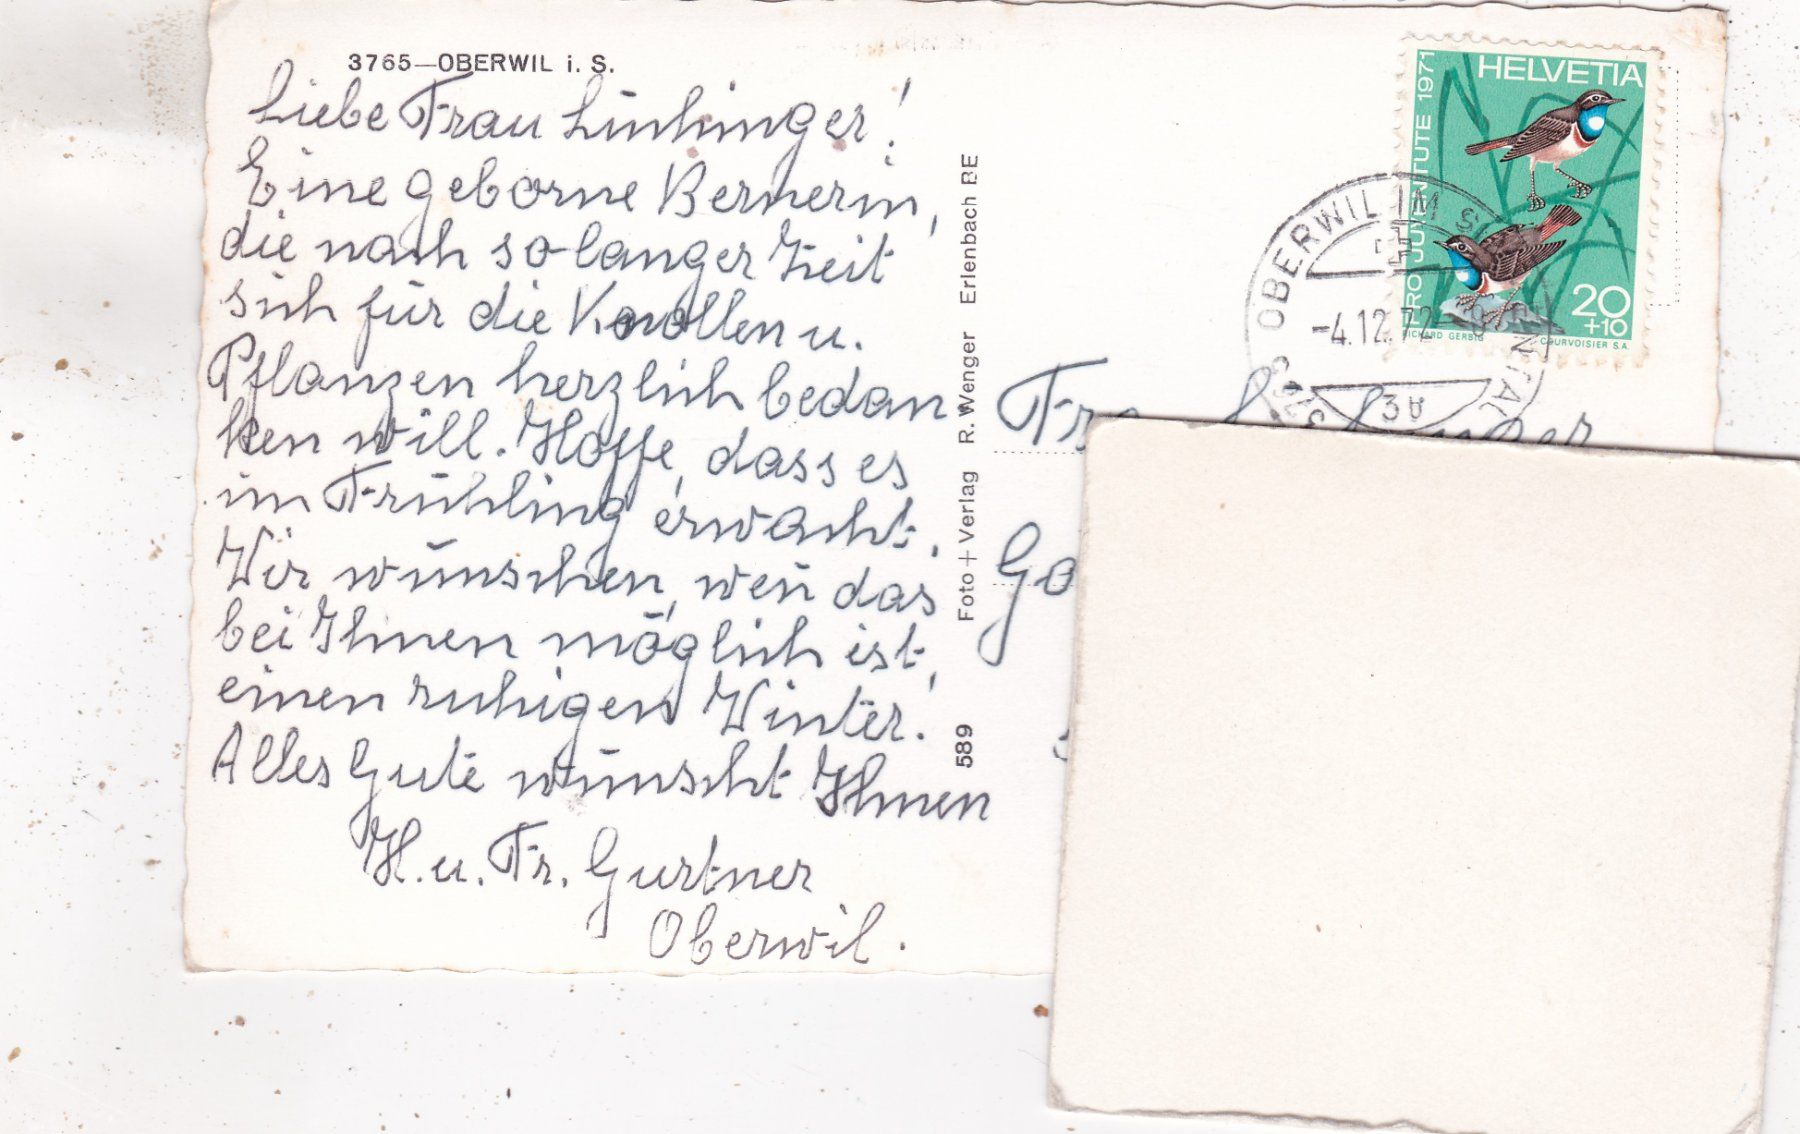 3765—OBERWIL i. S.
Liebe Frau
Eine geborne Bernerin,
die nach so langer Zeit
sich für die Knollen u.
Pflanzen herzlich bedan
ken will. Hoffe, dass es
im Frühling erwacht.
Wir wünschen, wen̄ das
bei Ihnen möglich ist,
einen ruhigen Winter.
Alles Gute wünscht Ihnen
H. u. Fr. Gurtner
Oberwil.
589 Foto + Verlag R. Wenger Erlenbach BE
HELVETIA
PRO JUVENTUTE 1971
20
+10
RICHARD GERBIG COURVOISIER S.A.
3765 OBERWIL IM SIMMENTAL
-4.12.72